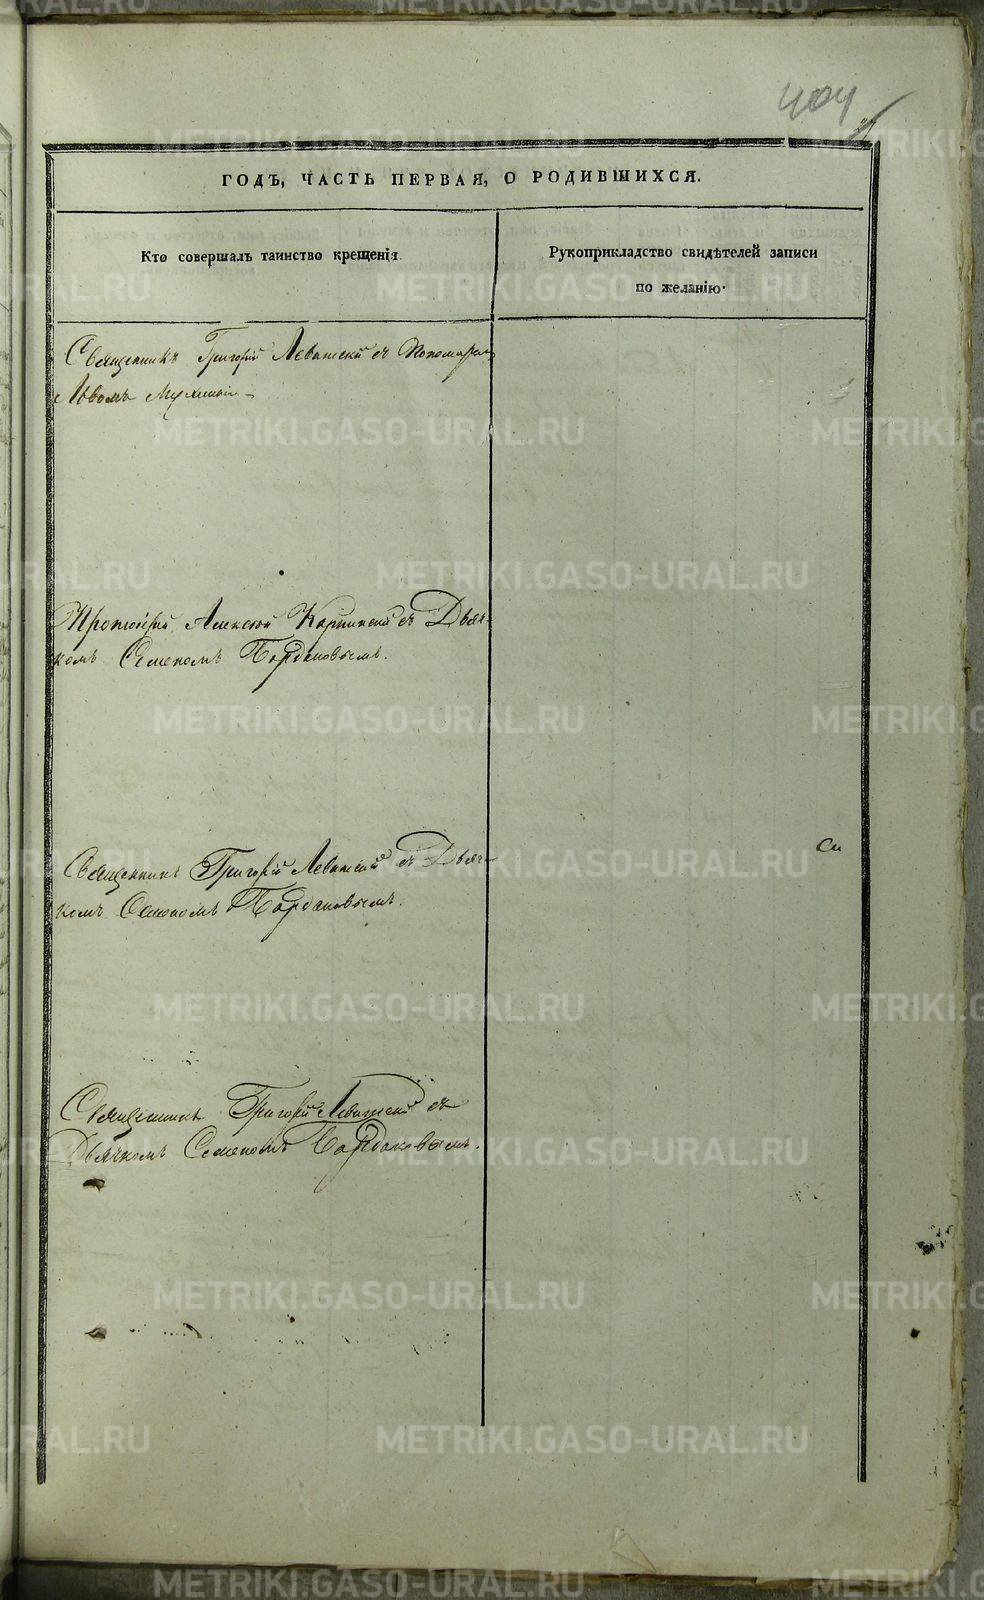 404
ГОДЪ, ЧАСТЬ ПЕРВАЯ, О РОДИВШИХСЯ.
Кто совершалъ таинство крещенія.
Рукоприкладство свидѣтелей записи
по желанію.
Священникъ Григорій Левитскій съ Пономаремъ
Львомъ
Протоіерей Алексѣй Карпинскій съ Дьяч-
комъ Семеномъ Бардаковымъ.
Священникъ Григорій Левитскій съ Дьяч-
комъ Семеномъ Бардаковымъ.
Священникъ Григорій Левитскій съ
Дьячкомъ Семеномъ Бардаковымъ.
METRIKI.GASO-URAL.RU